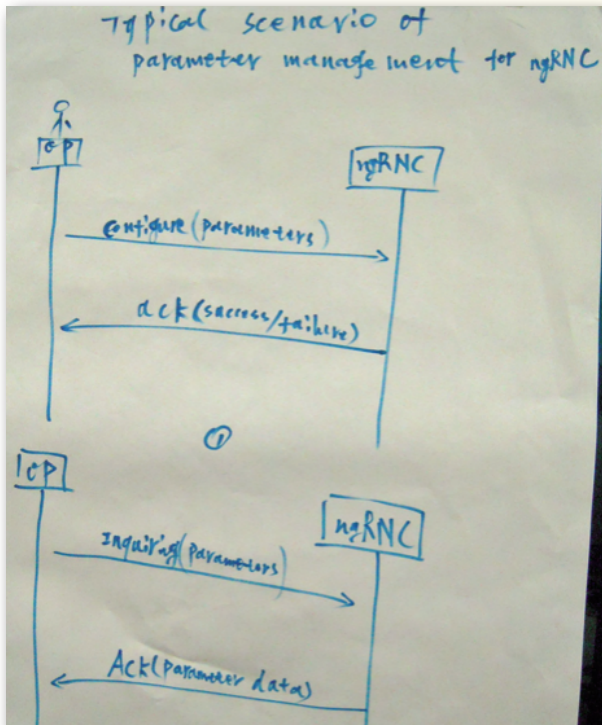 Typical scenario of
parameter management for ngRNC
OP
ngRNC
Configure(parameters)
ack(success/failure)
①
OP
ngRNC
Inquiring(parameters)
Ack(parameter data)